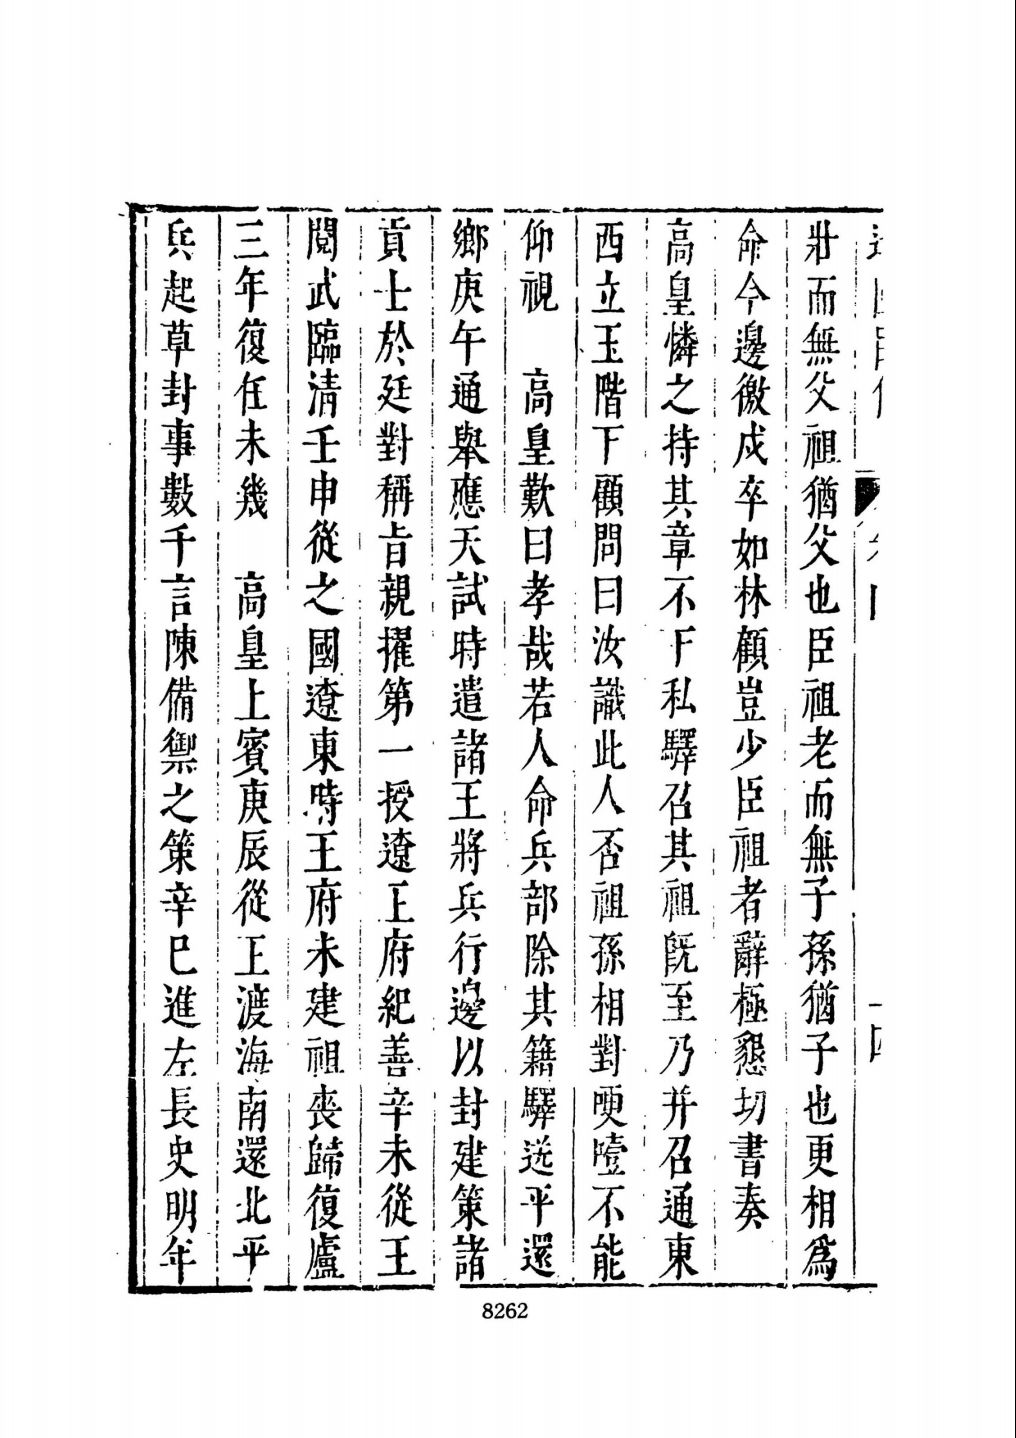 壯而無父祖猶父也臣祖老而無子孫猶子也更相爲
命今邊徼戍卒如林顧豈少臣祖者辭極懇切書奏
高皇憐之持其章不下私驛召其祖旣至乃幷召通東
西立玉階下顧問曰汝識此人否祖孫相對哽噎不能
仰視　高皇歎曰孝哉若人命兵部除其籍驛送平還
鄉庚午通舉應天試時遣諸王將兵行邊以封建策諸
貢士於廷對稱旨親擢第一授遼王府紀善辛未從王
閱武臨清壬申從之國遼東時王府未建祖喪歸復廬
三年復任未幾　高皇上賓庚辰從王渡海南還北平
兵起草封事數千言陳備禦之策辛巳進左長史明年
8262